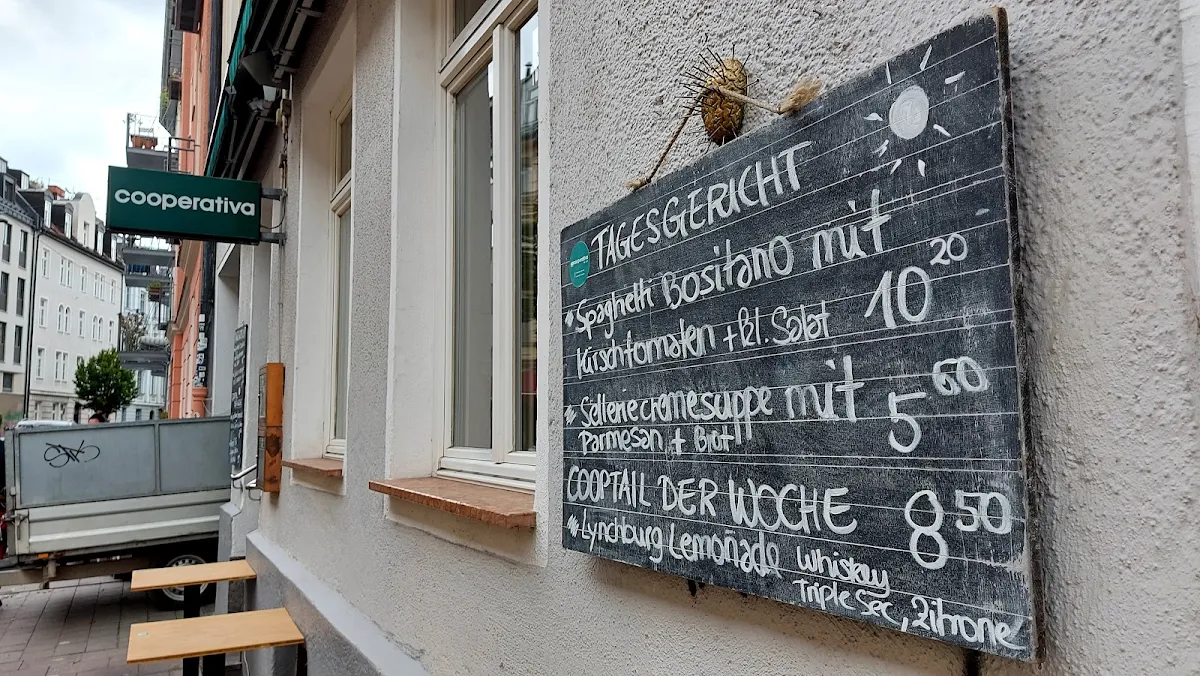 cooperativa
TAGESGERICHT
Spaghetti Bositano mit
Kirschtomaten + kl. Salat 10 20
Selleriecremesuppe mit
Parmesan + Brot 5 60
COOPTAIL DER WOCHE 8 50
Lynchburg Lemonade Whiskay
Triple Sec, Zitrone